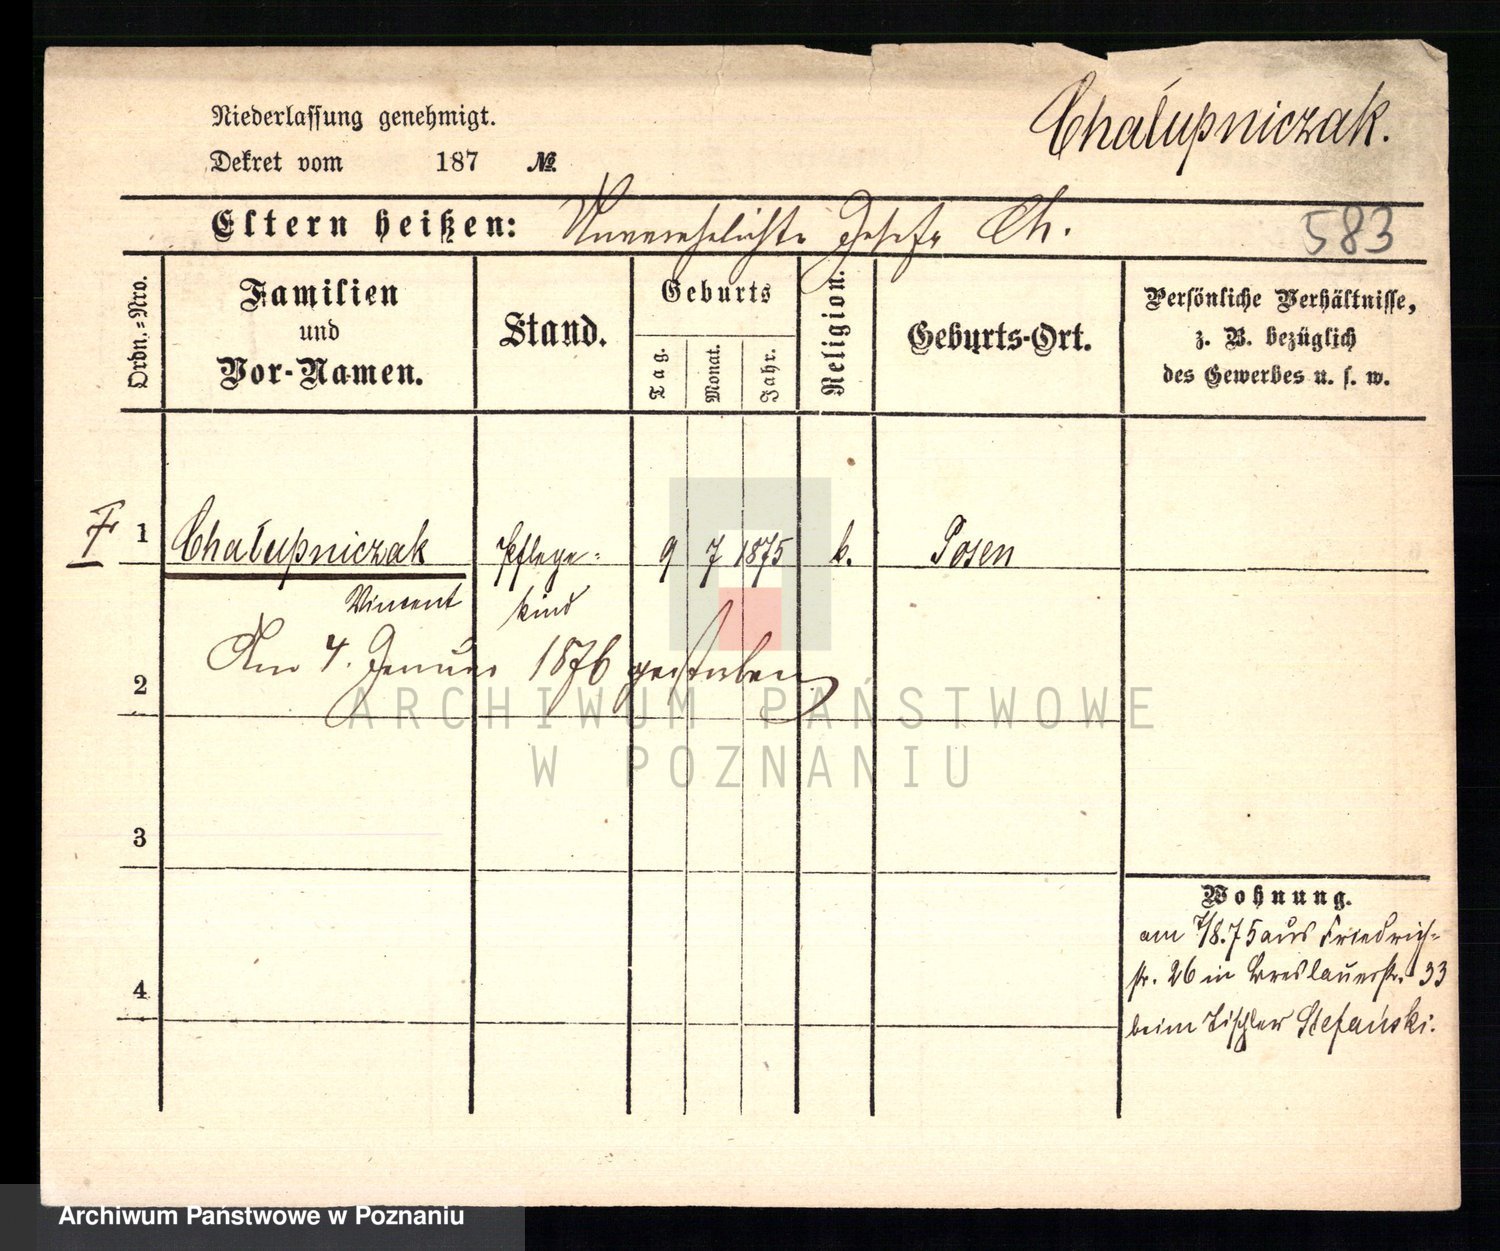 Niederlassung genehmigt.
Chałupniczak.
Dekret vom 187 №
Eltern heißen: Unverehelichte Josefa Ch.
583
Ordn.-Nro.
Familien
und
Vor-Namen.
Stand.
Geburts
Tag.
Monat.
Jahr.
Religion.
Geburts-Ort.
Persönliche Verhältnisse,
z. B. bezüglich
des Gewerbes u. s. w.
1 Chałupniczak Pflege- 9 7 1875 k. Posen
Vincent kind
Am 4. Januar 1876 gestorben
2
3
4
Wohnung.
am 7/8.75 aus Friedrich-
str. 26 in Breslauerstr. 33
beim Tischler Stefański.
ARCHIWUM PAŃSTWOWE
W POZNANIU
Archiwum Państwowe w Poznaniu